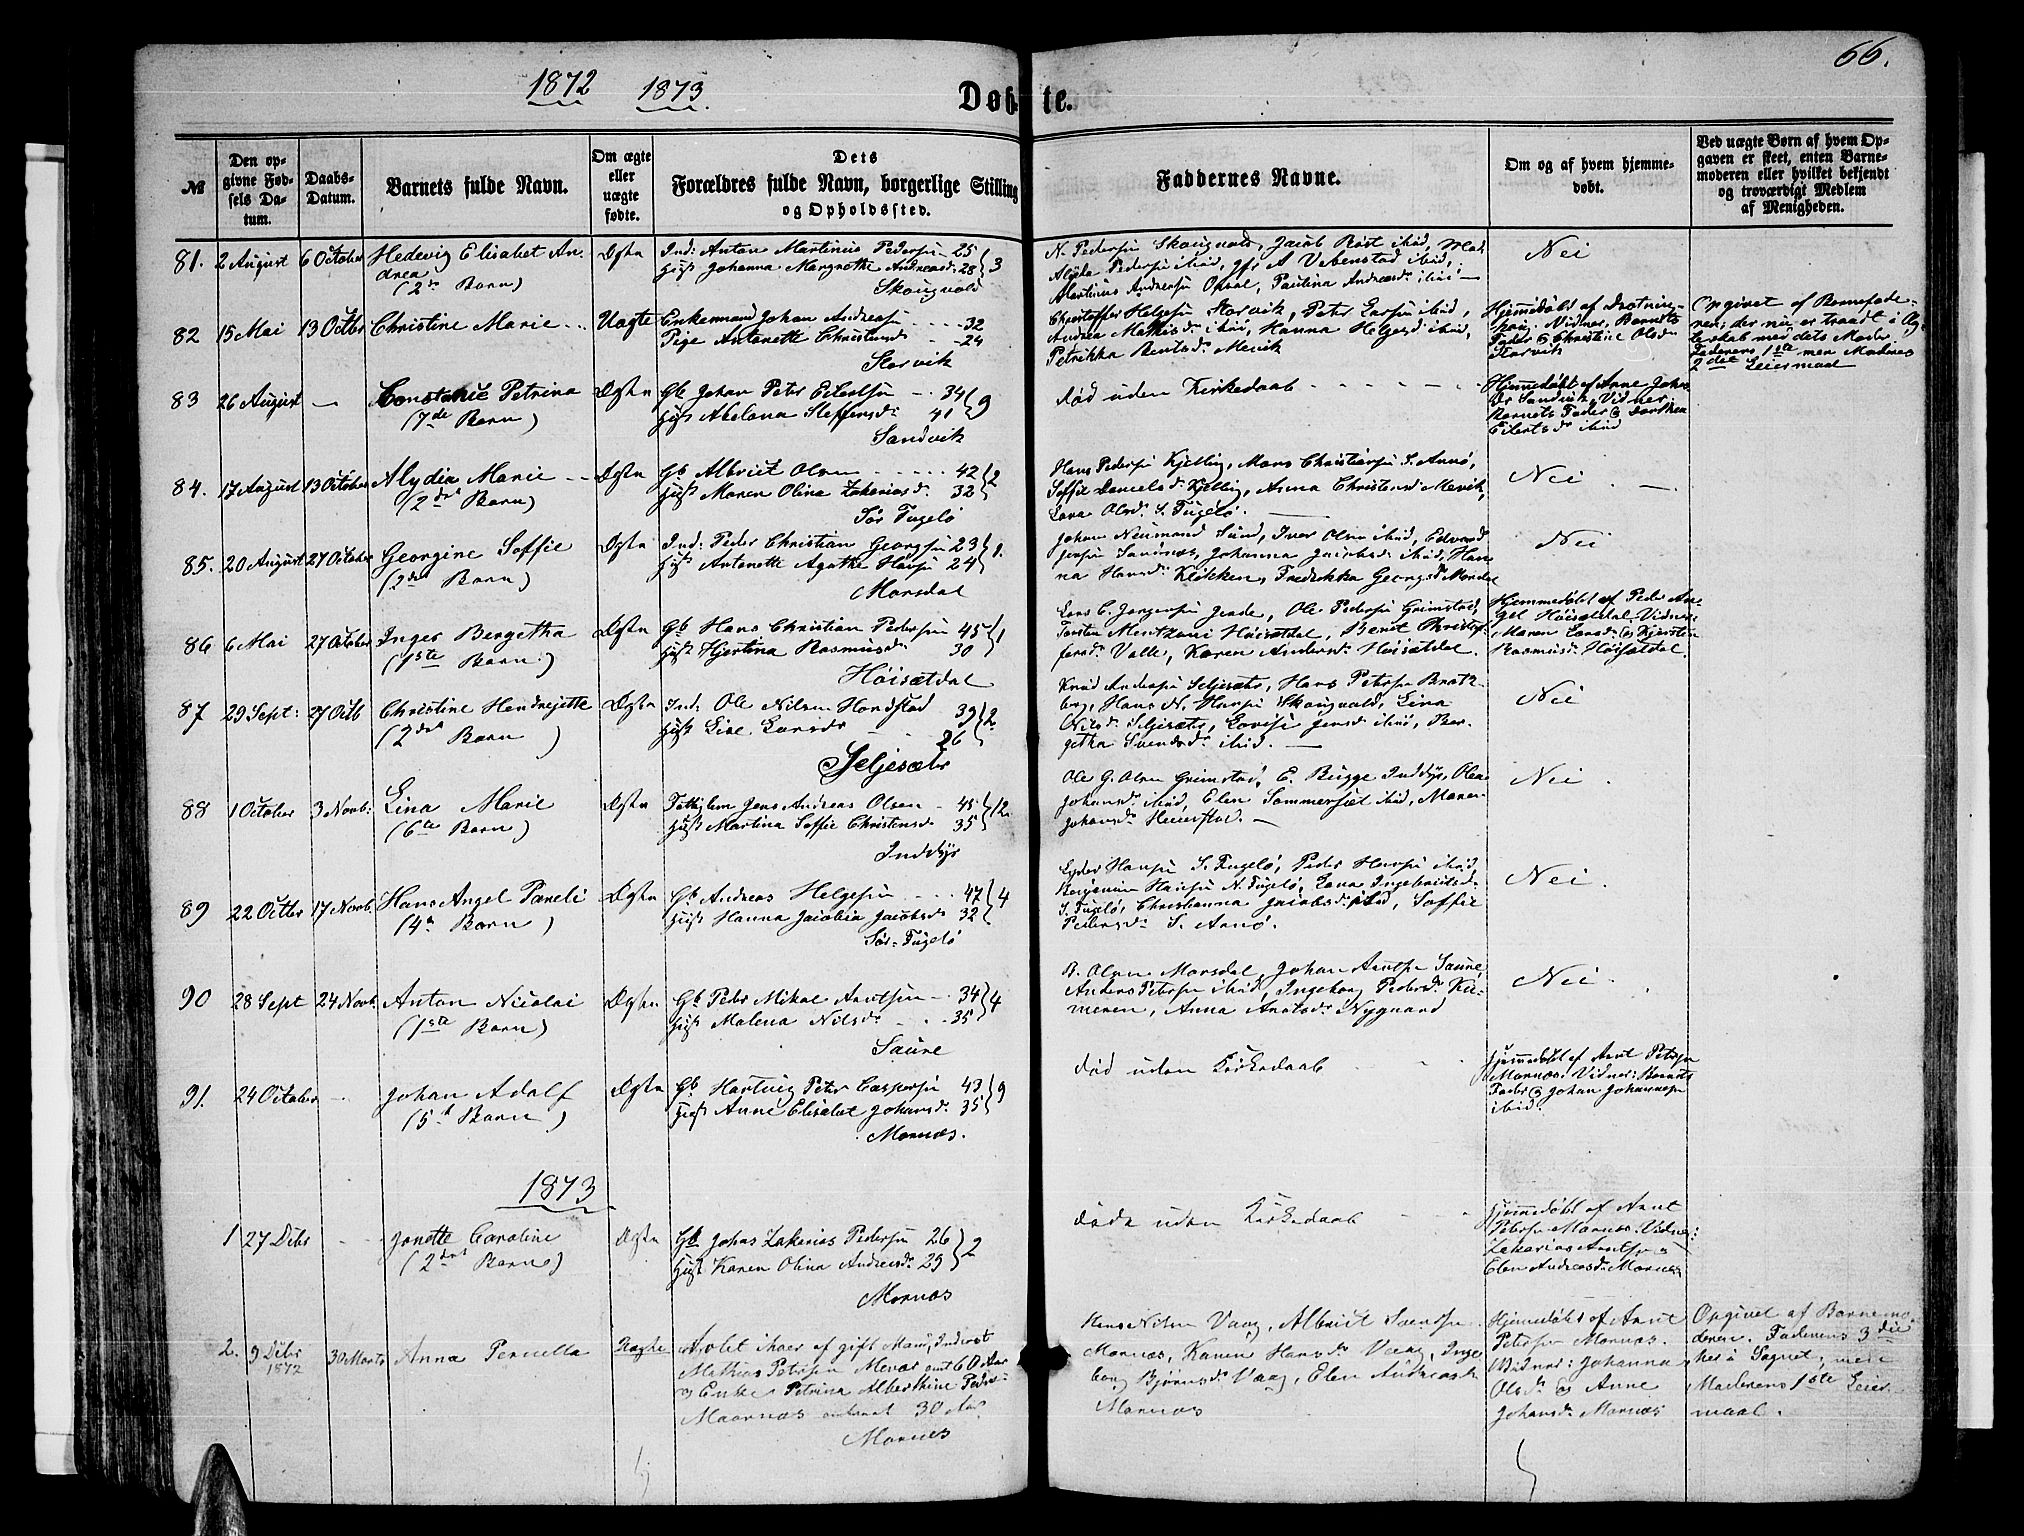 66.
1872 1873.
Døbte.
№
Den opgivne Fødsels Datum.
Daabs-Datum.
Barnets fulde Navn.
Om ægte eller uægte fødte.
Dets Forældres fulde Navn, borgerlige Stilling og Opholdssted.
Faddernes Navne.
Om og af hvem hjemmedøbt.
Ved uægte Børn af hvem Opgaven er skeet, enten Barnemoderen eller hvilket bekjendt og troværdigt Medlem af Menigheden.
81. 2 August 6 October Hedevig Elisabet Andrea (2det Barn) Ægte
Ind: Anton Martinus Pedersen 25
Hust Johanna Margrethe Andreasd: 28 3
Skougvold
N. Pedersen Skougvold, Jacob Røst ibid,
Alyda Pedersen ibid,
Martinus Andersen Opsal, Paulina Andreasdr ibid
Nei
82 15 Mai 13 Octbr Christine Marie Uægte
Enkemand Johan Andreasen 32
Pige Antonette Christiansd 24
Storvik
Christoffer Helgesen Storvik, Peter Larsen ibid,
Andrea Mathisdr ibid, Hanna Helgesdr ibid,
Petrikka Bentsdr Mevik
Hjemmedøbt af
Vidner, Barnets
Fader & Christine Olsdr
Storvik
Opgivet af Barnefaderen, der nu er traadt i Ægteskab med dets Moder
Faderens 1ste men Moderens
2det Leiermaal
83 26 August — Constanse Petrina (7de Barn) Ægte
Gb Johan Peter Eilertsen 34
Hust Abelona Steffensdr 41 9
Sandvik
død uden Kirkedaab
Hjemmedøbt af Anne Johansdr Sandvik, Vidner:
Barnets Fader & Dorthea
Eilertsdr ibid
84. 17 August 13 October Alydia Marie (2det Barn) Ægte
Gb Albrict Olsen 42
Hust Maren Olina Zakeriasdr 32 2
Sør Fugelø
Hans Pedersen Kjelling, Mons Christiansen S. Arnø,
Soffie Danielsdr Kjelling, Anna Christensdr Mevik,
Lava Olsdr S. Fugelø.
Nei
85. 20 August 27 October Georgine Soffie (2det Barn) Ægte
Ind: Peder Christian Georgsen 23
Hust Antonette Agathe Hansen 24 1.
Morsdal
Johan Neumand Sund, Iver Olsen ibid, Edvard
Jensen Sandnæs, Johanna Jacobsdr ibid, Hanna Hansdr Klokken, Fredrikka Georgsdr Morsdal
Nei
86 6 Mai 27 October Inger Bergetha (1ste Barn.) Ægte
Gb Hans Christian Pedersen 45
Hust Hjertina Rasmusdr 30 1
Høisætdal
Lars C. Jørgensen Jeade, Ole Pedersen Grimstad,
Torsten Mentzoni Høisætdal, Berret Christoffersdr Valle, Karen Andersdr Høisætdal.
Hjemmedøbt af Peder Angel Høisætdal. Vidner:
Maren Larsdr & Kjerstin
Rasmusdr Høisætdal.
87 29 Sept: 27 Octb Christine Hendrejette (2det Barn) Ægte
Ind: Ole Nilsen Hondstad 39
Hust Lise Larsdr 26 2
Seljesæter
Knud Andersen Seljesæter, Hans Petersen Bratberg, Hans N. Hansen Skougvold, Lina
Nilsdr Seljesæter, Lovise Jensdr ibid, Bergetha Svendsdr ibid.
Nei
88 1 October 3 Novb: Lina Marie (6te Barn) Ægte
Jens Andreas Olsen 45
Hust Martina Soffie Christensdr 35 12
Inddyr
Ole G. Olsen Grimstad, E. Bugge Inddyr, Olea
Johansdr ibid, Elen Sommerset ibid, Maren
Johansdr
Nei
89 22 Octbr 17 Novb. Hans Angel Pareli (4de Barn) Ægte
Gb Andreas Helgesen 47
Hust Hanna Jacobia Jacobsdr 32 4
Sør-Fugelø
Lyder Hansen S. Fugelø, Peder Hansen ibid
Benjamin Hansen N. Fugelø, Lava Ingebrictsdr
S. Fugelø, Christianna Jacobsdr ibid, Soffie
Pedersdr S. Arnø.
Nei.
90 28 Sept 24 Novb. Anton Nicolai (1ste Barn) Ægte
Gb Peder Mikal Arntsen 34
Hust Malena Nilsdr 35 4
Saure
B. Olsen Morsdal, Johan Arntsen Saure,
Anders Petersen ibid, Ingeborg Pedersdr
Anna Arntsdr Nygaard
Nei.
91. 24 October — Johan Adolf (5te Barn) Ægte
Gb Hartvig Peter Caspersen 43
Hust Anne Elisabet Johansdr 35 9
Mornæs.
død uden Kirkedaab
Hjemmedøbt af Arnt Petersen
Mornæs. Vidner: Barnets
Fader & Johan Johannesen
ibid.
1873
1 27 Debr Jonette Caroline (2det Barn) Ægte
Gb Johas Zakerias Pedersen 26
Hust Karen Olina Andreasdr 29 2
Mornæs
døde uden Kirkedaab
Hjemmedøbt af Arnt
Petersen Mornæs. Vidner:
Zakarias Arntsen &
Elen Andreasdr Mornæs
2. 9 Debr 1872 30 Marts Anna Pernella Uægte
Avlet i Hoer af gift Mand, Inderst
Mathias Petersen Mevær omt 60 Aar
og Enke Petrina Alberthine Peders-
Maarnæs omtrent 30 Aar
Mornæs
Hans Nilsen Vaag, Albrict Svendsen
Mornæs, Karen Hansdr Vaag, Ingeborg Bjørnsdr Vaag, Elen Andreasdr
Mornæs
Hjemmedøbt af Arnt
Petersen Mornæs.
Vidner: Johanna
Olsdr & Anne
Johansdr Mornæs
Opgivet af Barnemoderen. Faderens 3die
her i Sognet, men
Moderens 1ste Leiermaal.